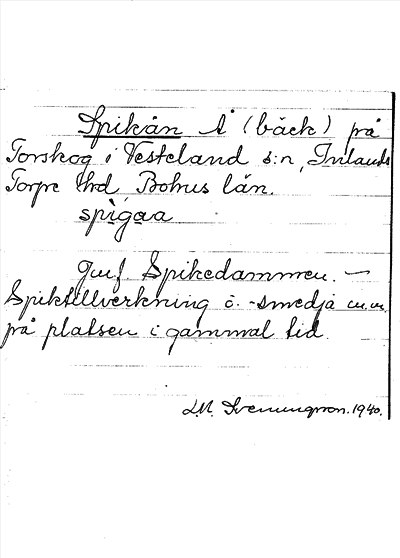 Spikån Å (bäck) på
Torskog i Vesteland s:n, Inlands
Torpe Hrd, Bohus län.
spigaa
Jmf. Spikedammen. —
Spiktillverkning o. smedja m.m.
på platsen i gammal tid.
Svenungsson. 1940.